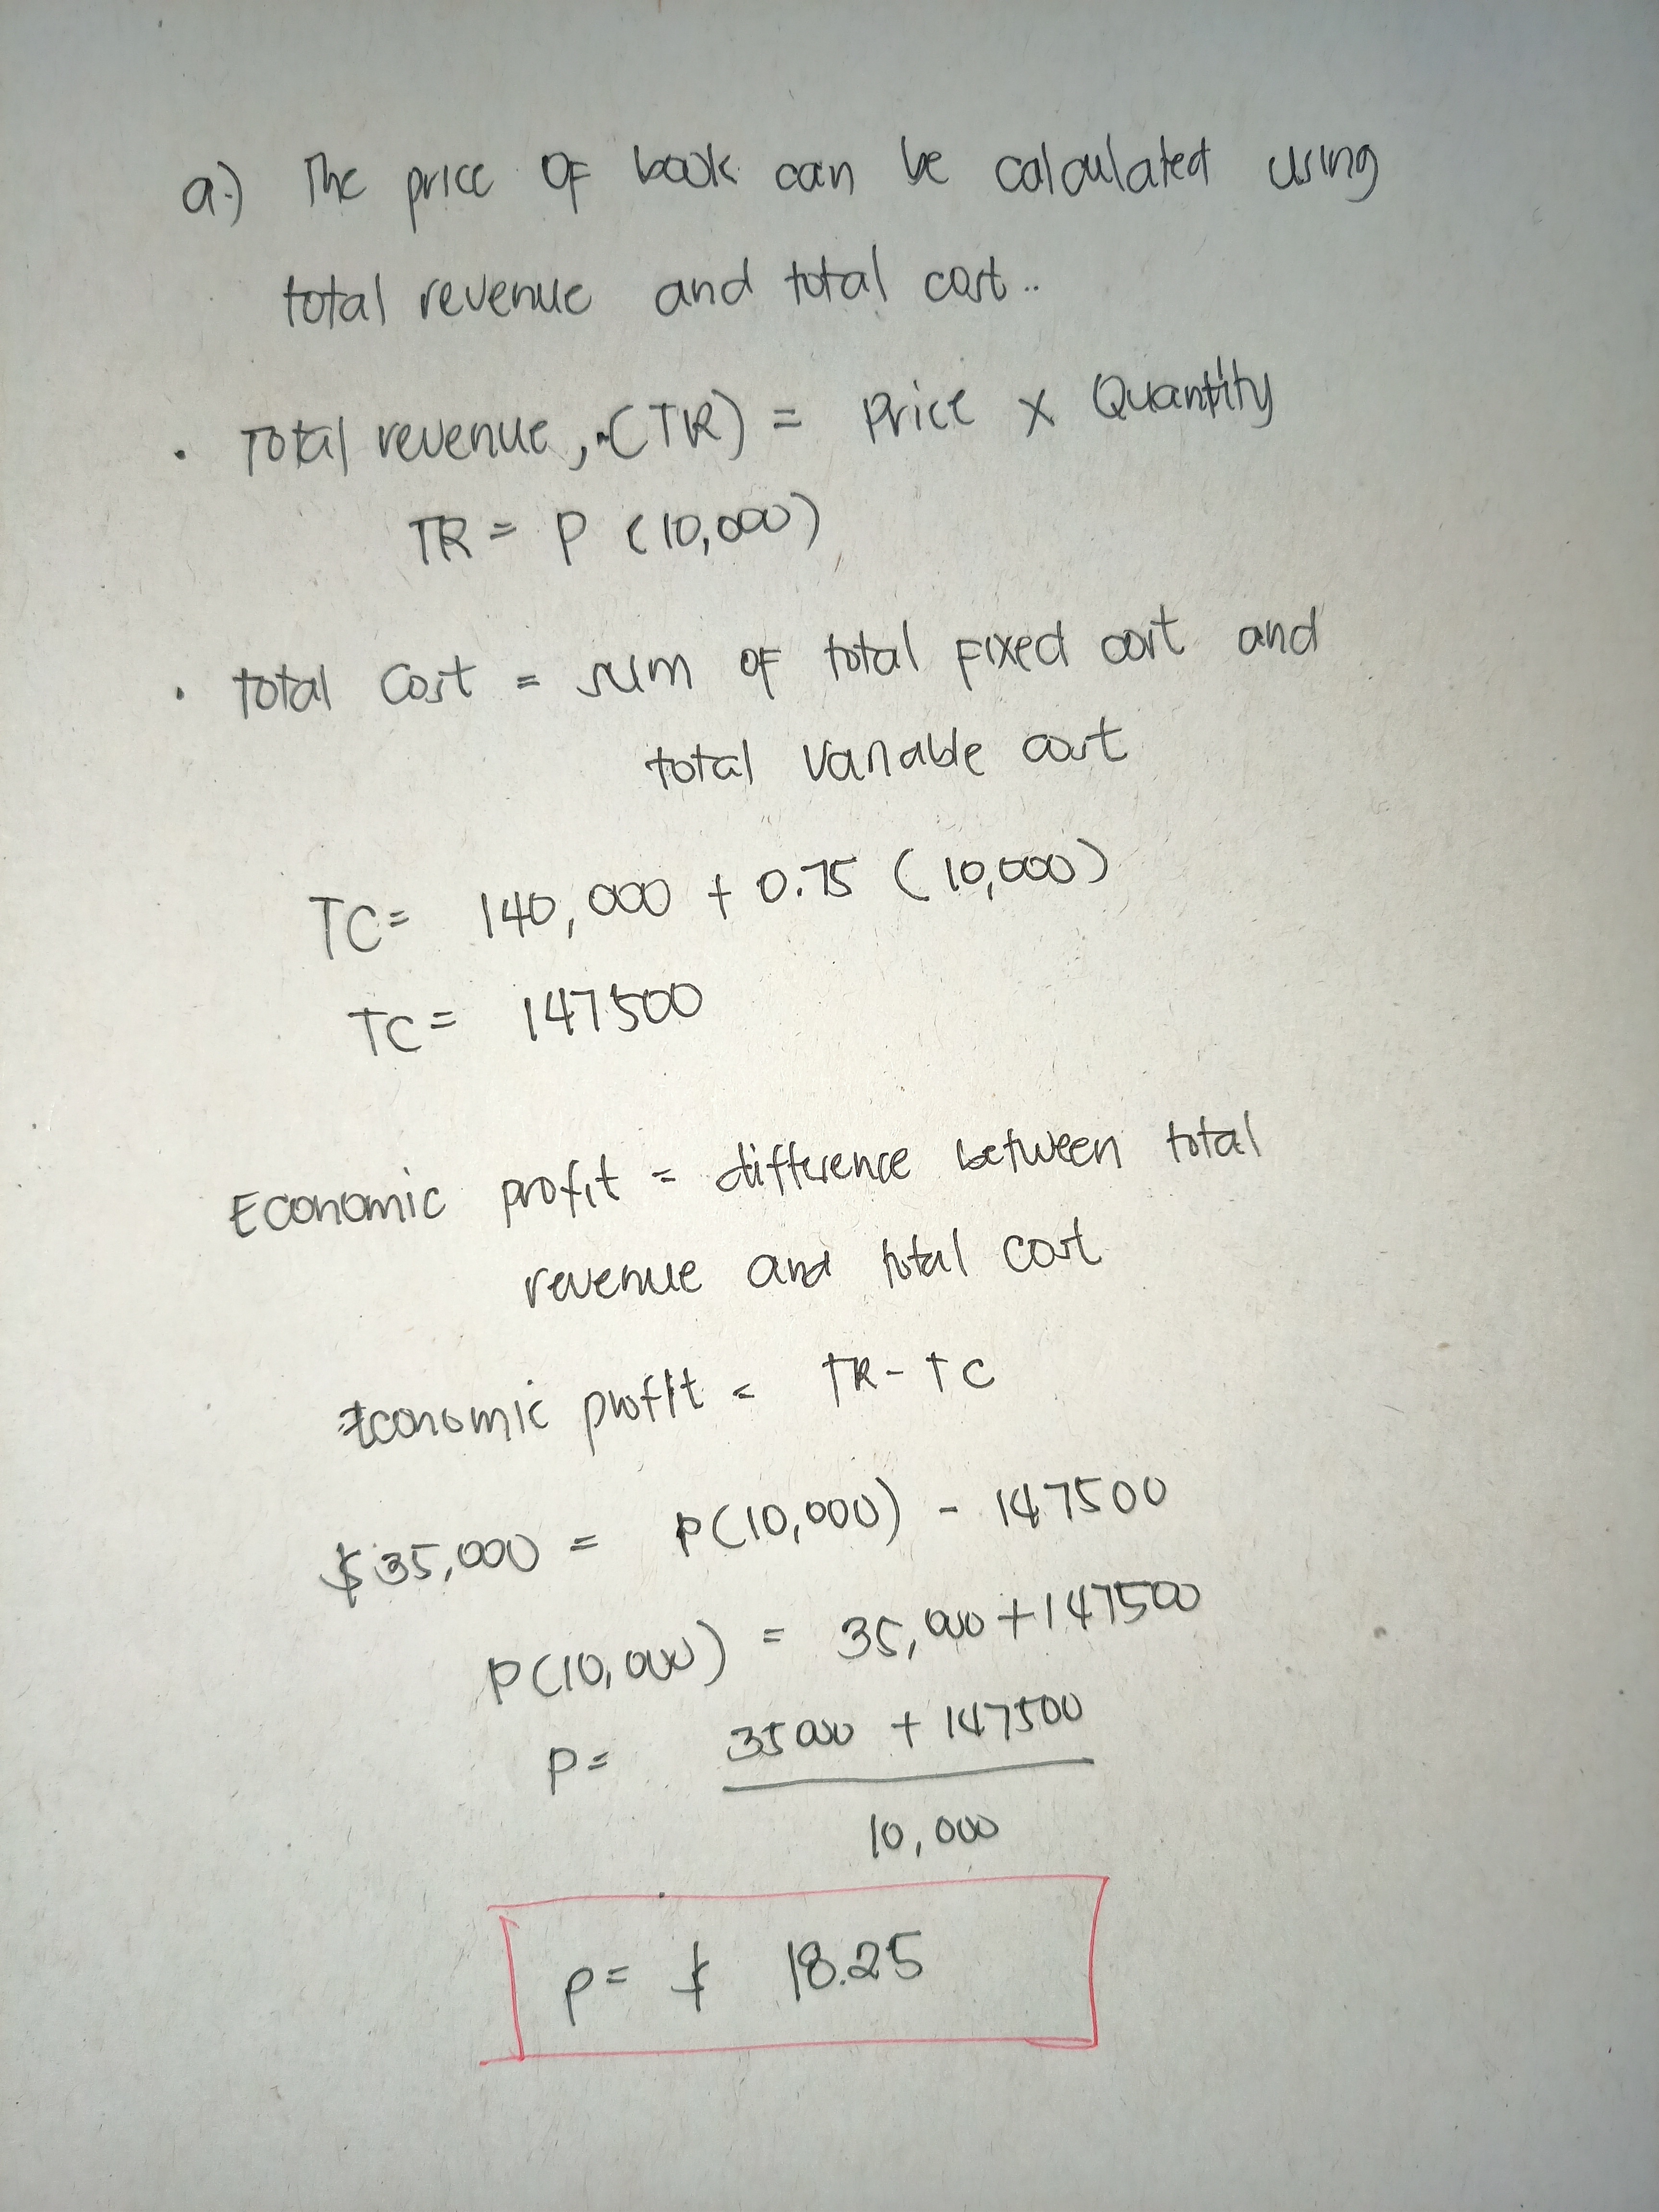 a.) The price of book can be calculated using
total revenue and total cost..
. Total revenue, (TR) = Price x Quantity
TR = P (10,000)
. total cost = sum of total fixed cost and
total variable cost
TC = 140,000 + 0.75 (10,000)
TC = 147500
Economic profit = difference between total
revenue and total cost
Economic profit = TR - TC
$35,000 = P(10,000) - 147500
P(10,000) = 35,000 + 147500
P = 35000 + 147500
10,000
P = $ 18.25